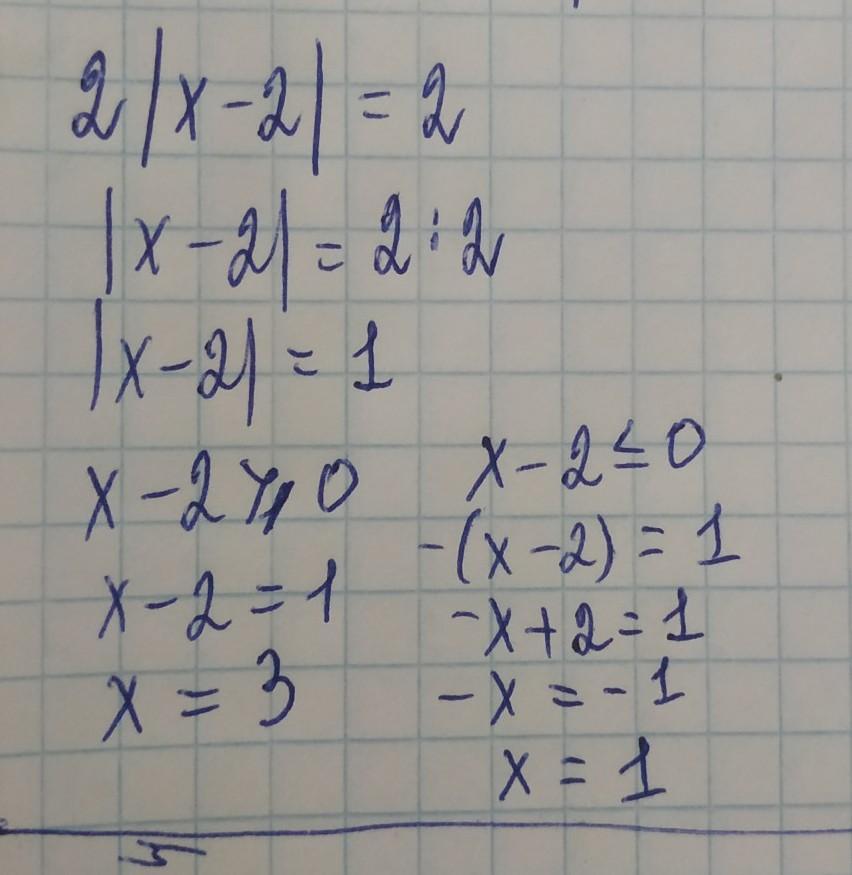 2|x-2| = 2
|x-2| = 2:2
|x-2| = 1
x-2 ⩾ 0
x-2 = 1
x = 3
x-2 ≤ 0
-(x-2) = 1
-x+2 = 1
-x = -1
x = 1